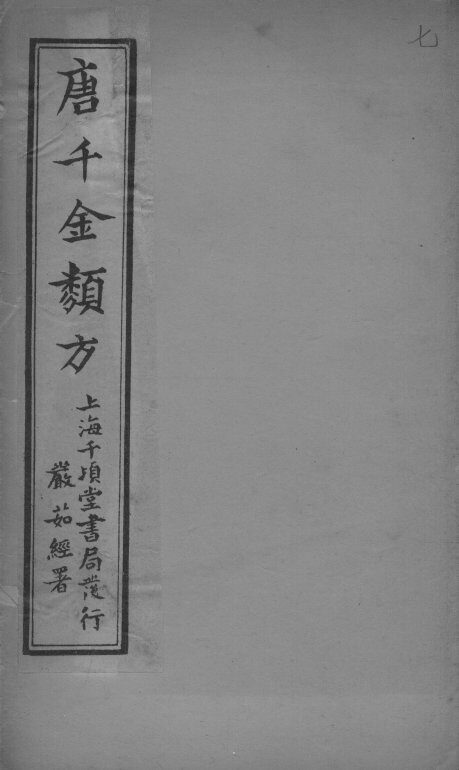 七
唐千金類方
上海千頃堂書局發行
嚴茹經署